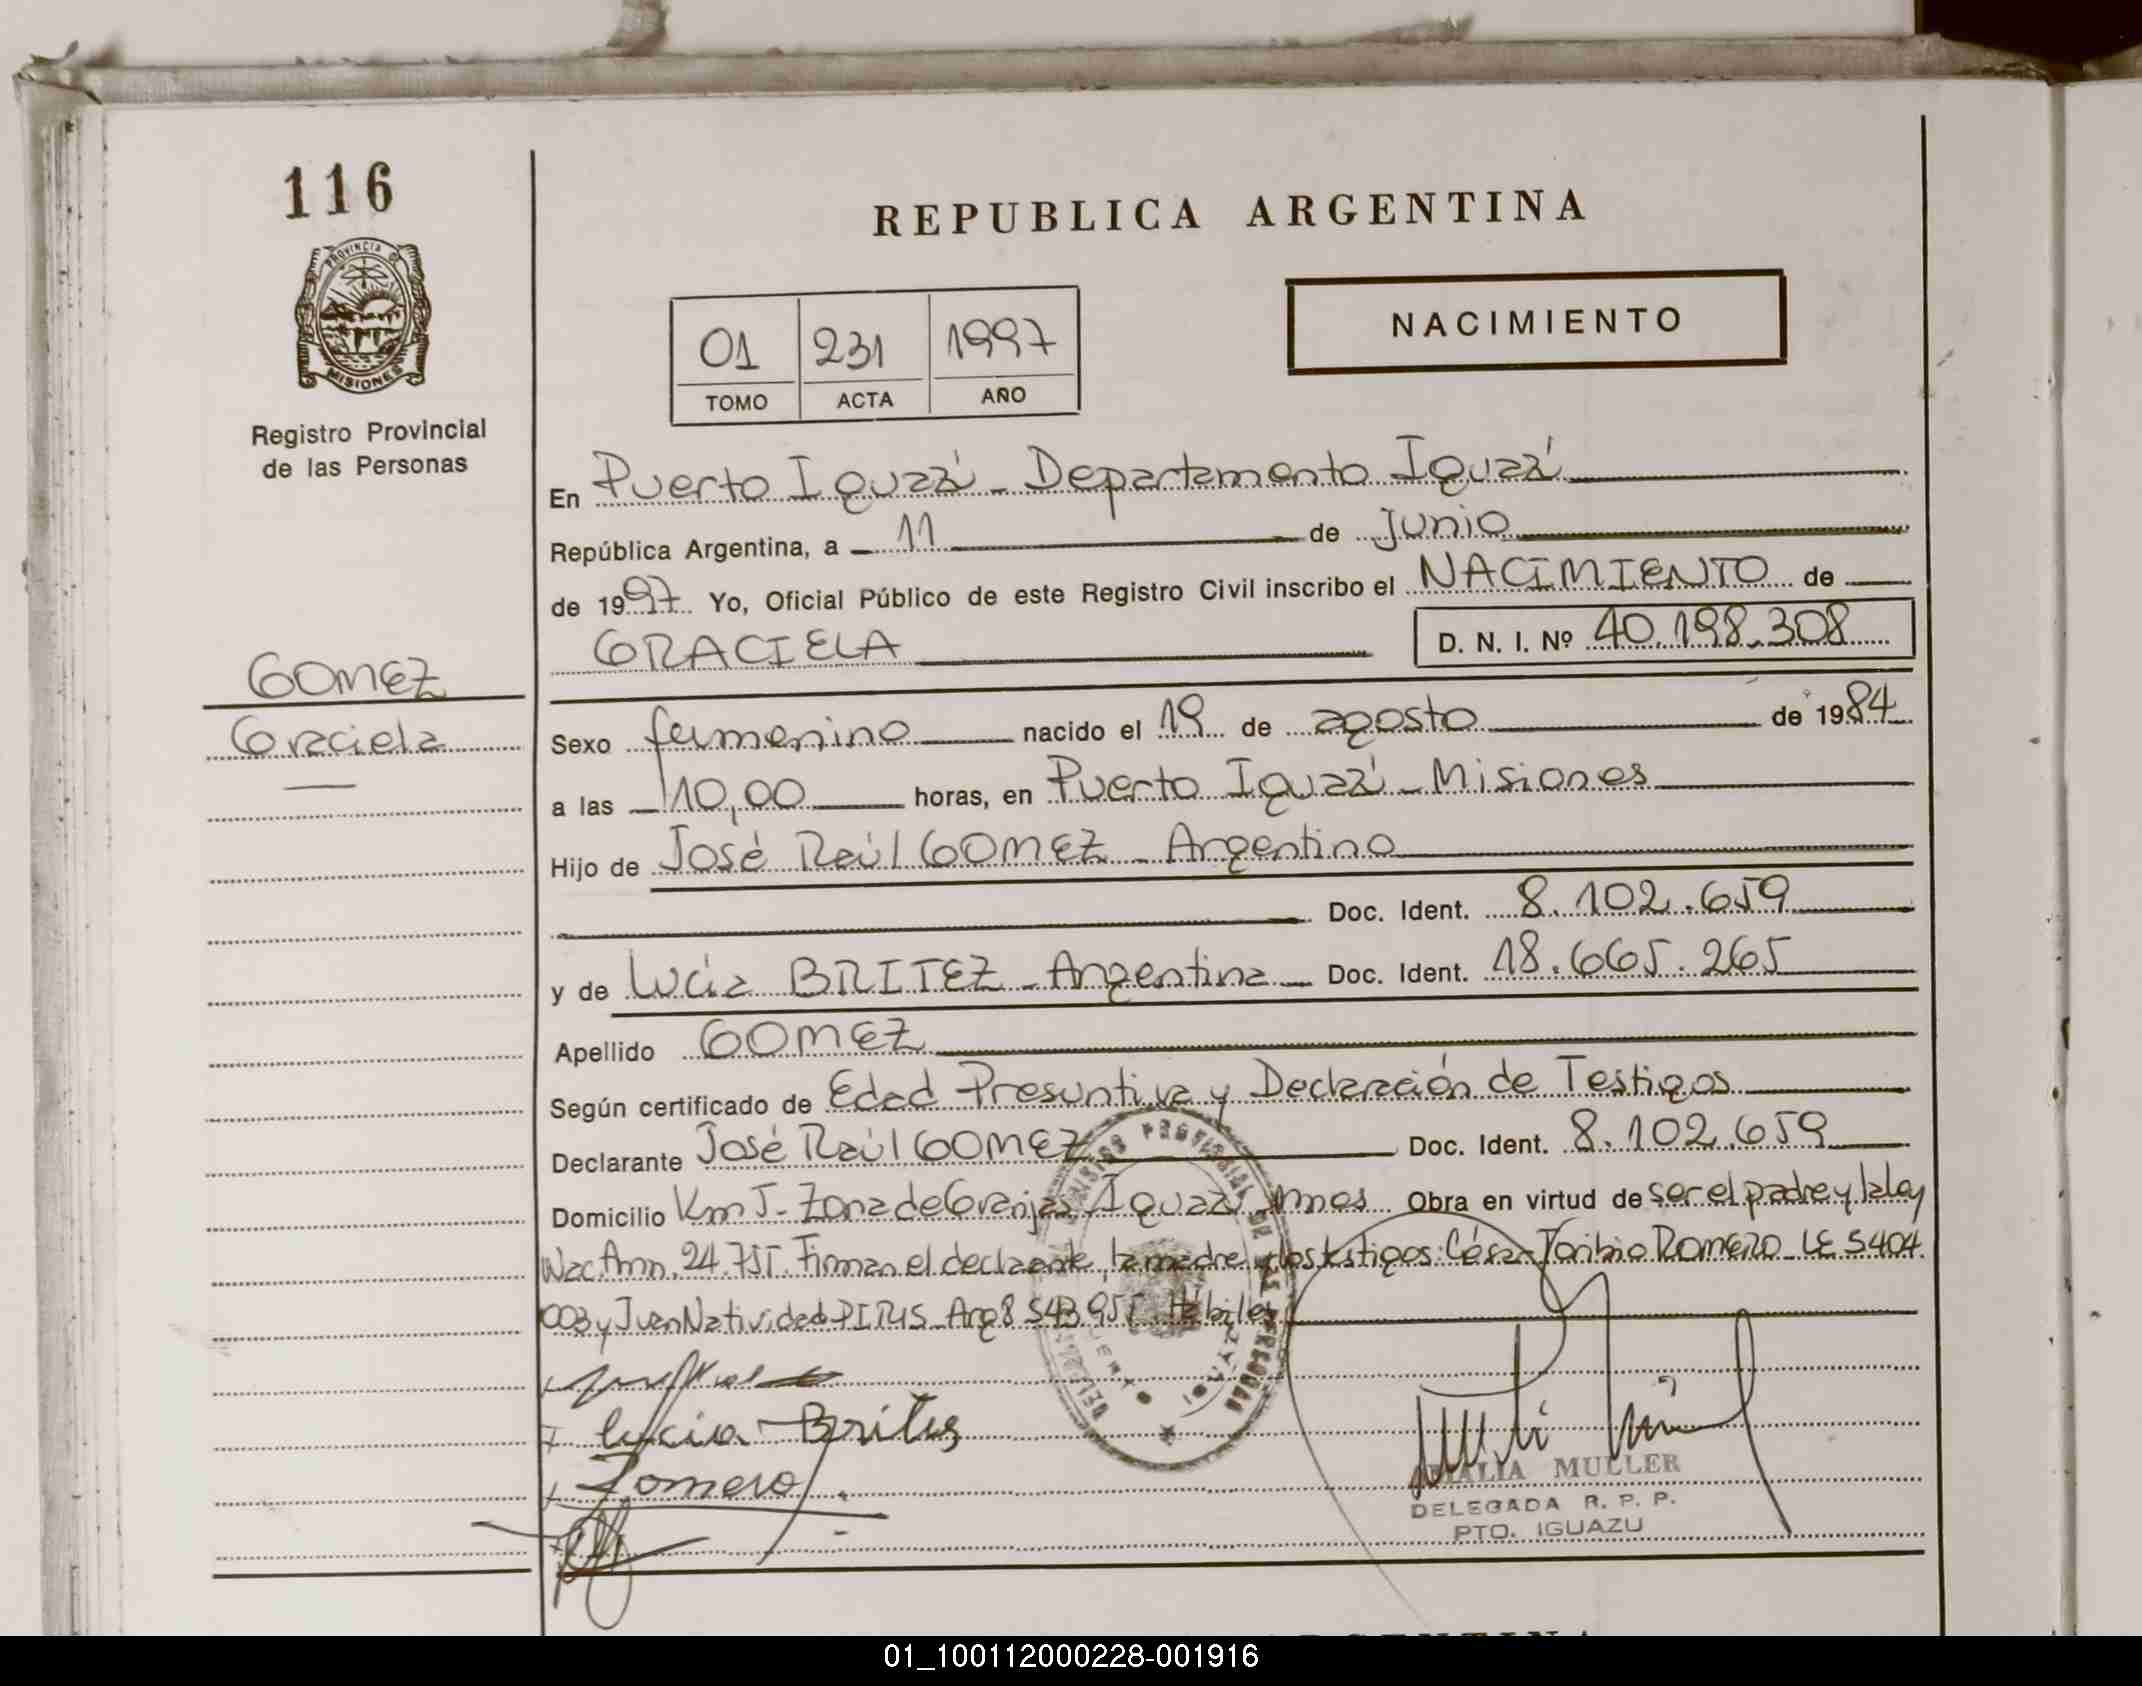 116
PROVINCIA DE
MISIONES
Registro Provincial
de las Personas
REPUBLICA ARGENTINA
01 231 1997
TOMO ACTA AÑO
NACIMIENTO
En Puerto Iguazú - Departamento Iguazú
República Argentina, a 11 de Junio
de 1997 Yo, Oficial Público de este Registro Civil inscribo el NACIMIENTO de
GRACIELA D. N. I. Nº 40.198.308
GOMEZ
Graciela
Sexo femenino nacido el 19 de agosto de 1984
a las 10,00 horas, en Puerto Iguazú - Misiones
Hijo de José Raúl GOMEZ - Argentino
Doc. Ident. 8.102.659
y de Lucía BRITEZ - Argentina Doc. Ident. 18.665.265
Apellido GOMEZ
Según certificado de Edad Presuntiva y Declaración de Testigos
Declarante José Raúl GOMEZ Doc. Ident. 8.102.659
Domicilio Km 5 - Zona de Granjas Iguazú Mnes Obra en virtud de ser el padre y la ley
Nac. Amn. 24.755. Firman el declarante, la madre y los testigos: César Toribio ROMERO LE 5404
003 y Juan Natividad PIRIS Arg 8 543 955 Hábiles
Lucia Britez
Romero
AMALIA MULLER
DELEGADA R. P. P.
PTO. IGUAZU
01_100112000228-001916